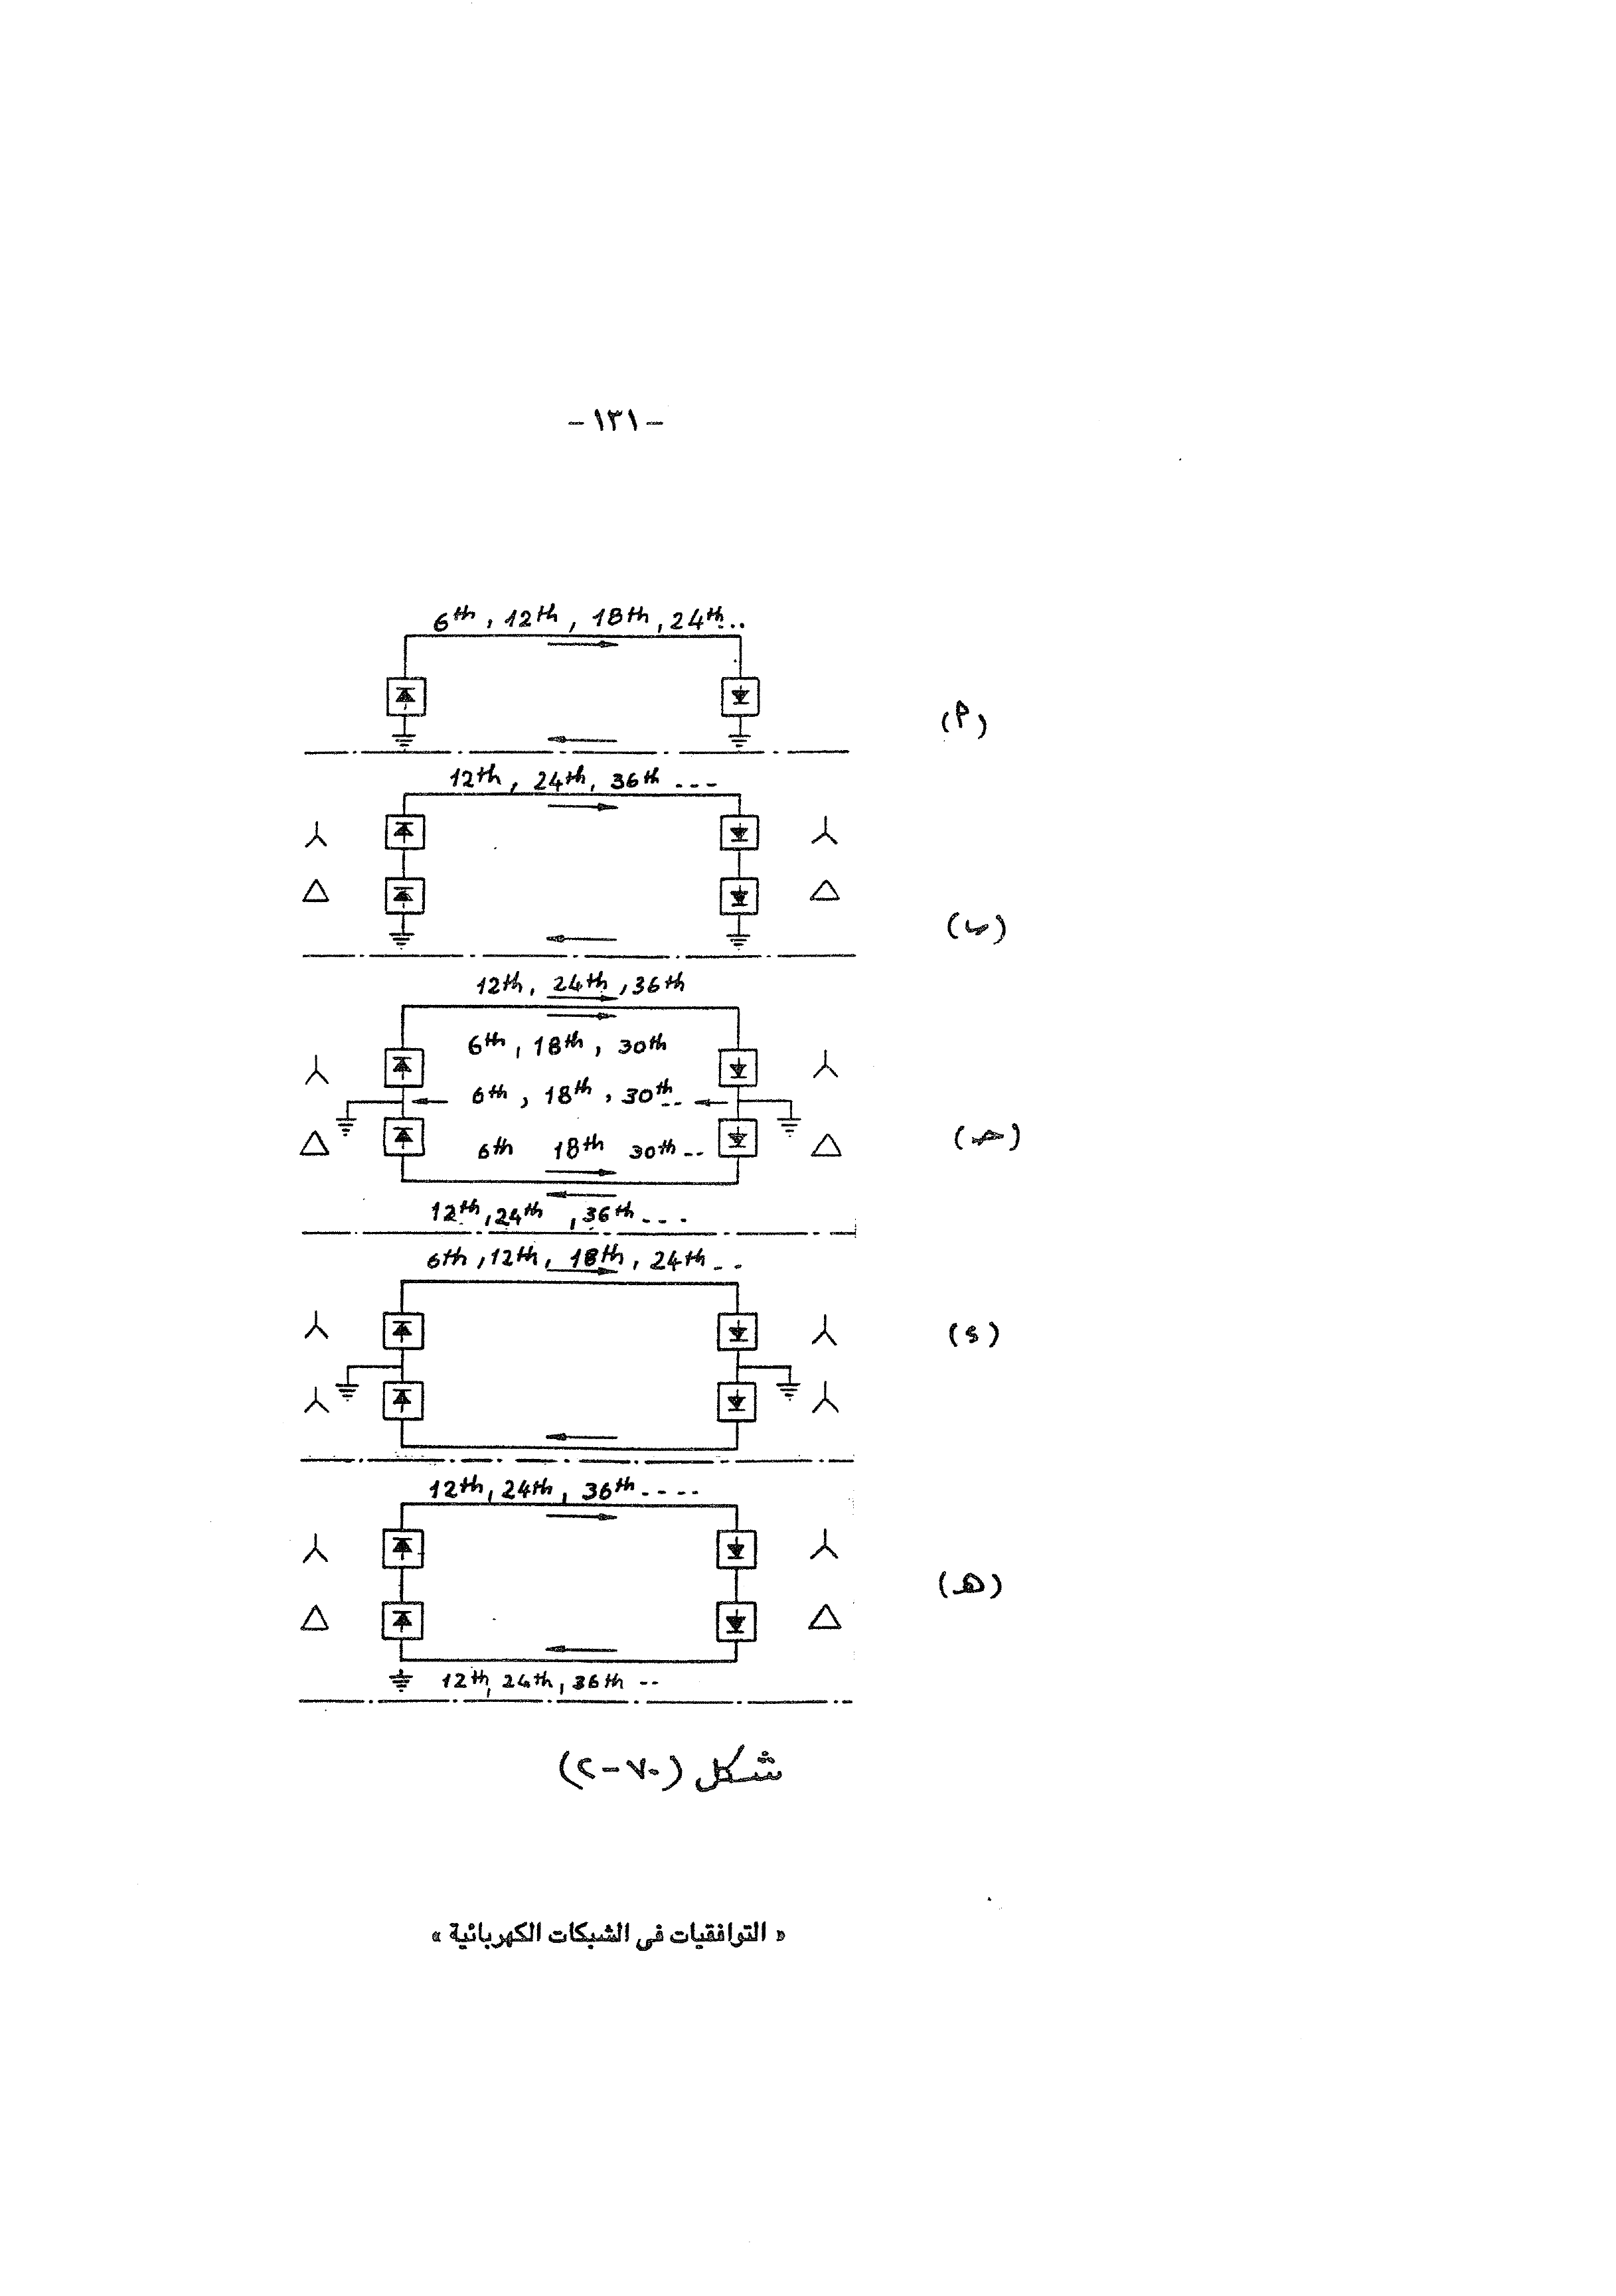 - ١٣١ -
6th, 12th, 18th, 24th...
(أ)
12th, 24th, 36th ---
(ب)
12th, 24th, 36th
6th, 18th, 30th
6th, 18th, 30th--
(ج)
6th 18th 30th--
12th, 24th, 36th----
6th, 12th, 18th, 24th--
(د)
12th, 24th, 36th----
(هـ)
12th, 24th, 36th --
شكل (٧٠-٢)
« التوافقيات فى الشبكات الكهربائية »